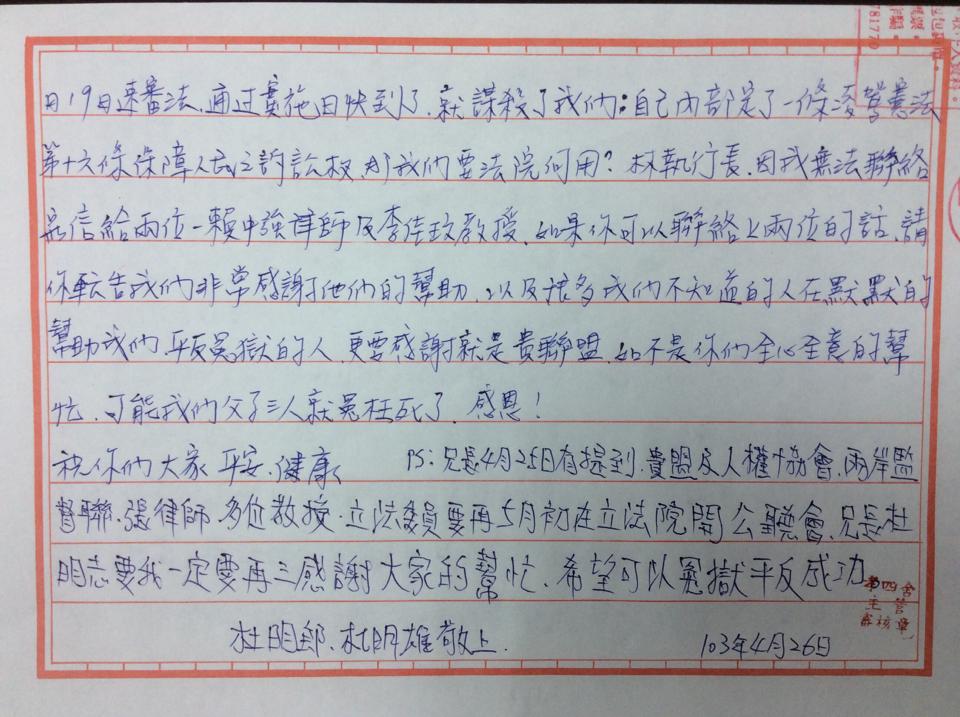 781770
日19日速審法、通过實施日快到了、就謀殺了我們:自己內部定了一條凌駕憲法
第十六條保障人民之訴訟权、那我們要法院何用?林執行長、因我無法聯絡
寫信給兩位-賴中強律師及李佳玟教授、如果你可以聯絡上兩位的話、請
你転告我們非常感謝他們的幫助、以及很多我們不知道的人在默默的
幫助我們、平反冤獄的人、更要感謝就是貴聯盟、如不是你們全心全意的幫
忙、可能我們父子三人就冤枉死了、感恩!
祝你們大家 平安、健康 PS:兄長4月25日有提到、貴盟及人權協會、兩岸監
督聯、張律師、多位教授、立法委員要再5月初在立法院開公聽會、兄長杜
明志要我一定要再三感謝大家的幫忙、希望可以冤獄平反成功
第四舍
主管
核章
杜明郎、杜明雄敬上、 103年4月26日